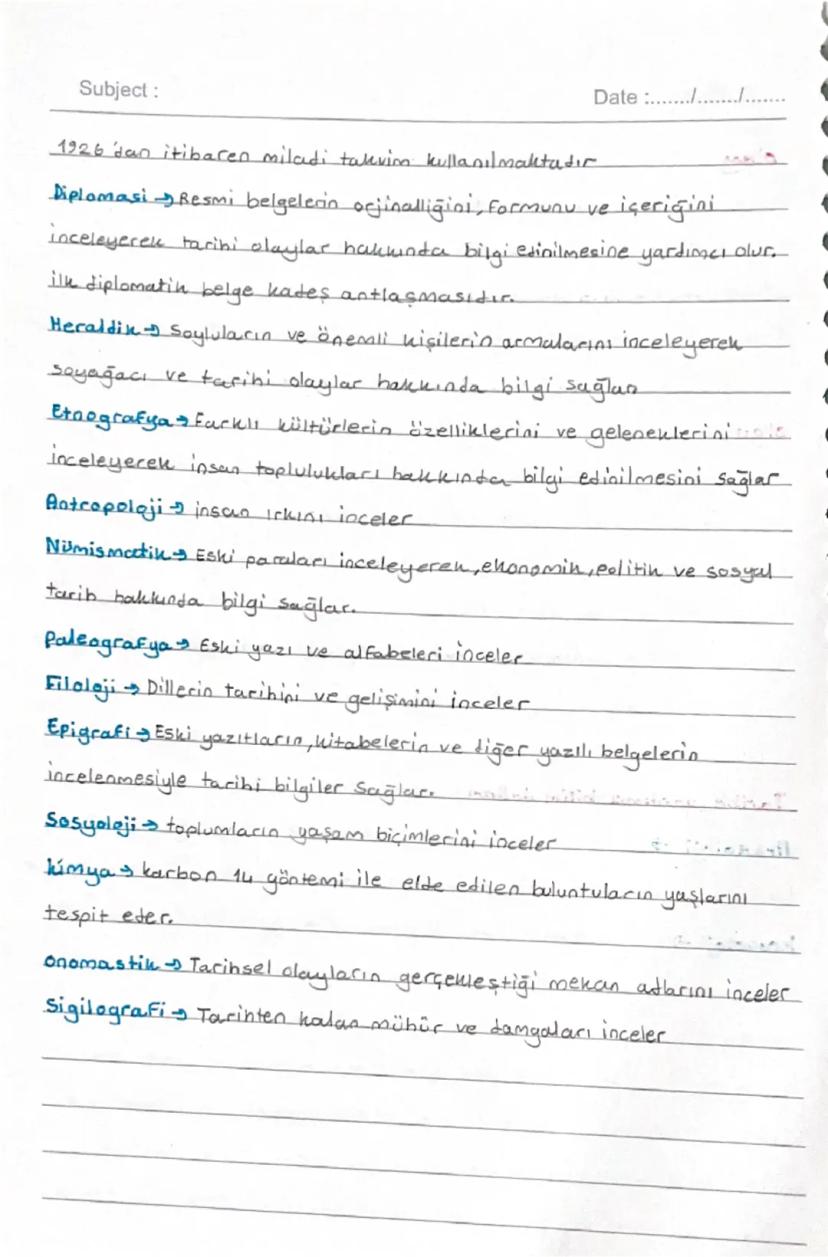 Subject :
Date :......./......./.......
1926'dan itibaren miladi takvim kullanılmaktadır
Diplomasi → Resmi belgelerin orjinalliğini, formunu ve içeriğini
inceleyerek tarihi olaylar hakkında bilgi edinilmesine yardımcı olur.
ilk diplomatik belge kadeş antlaşmasıdır.
Heraldik → Soyluların ve önemli kişilerin armalarını inceleyerek
soyağacı ve tarihi olaylar hakkında bilgi sağlar
Etnografya → Farklı kültürlerin özelliklerini ve geleneklerini
inceleyerek insan toplulukları hakkında bilgi edinilmesini sağlar
Antropoloji → insan ırkını inceler
Nümismatik → Eski paraları inceleyerek, ekonomik, politik ve sosyal
tarih hakkında bilgi sağlar.
Paleografya → Eski yazı ve alfabeleri inceler
Filoloji → Dillerin tarihini ve gelişimini inceler
Epigrafi → Eski yazıtların, kitabelerin ve diğer yazılı belgelerin
incelenmesiyle tarihi bilgiler sağlar.
Sosyoloji → toplumların yaşam biçimlerini inceler
kimya → karbon 14 yöntemi ile elde edilen buluntuların yaşlarını
tespit eder.
onomastik → Tarihsel olayların gerçekleştiği mekan adlarını inceler
Sigilografi → Tarihten kalan mühür ve damgaları inceler